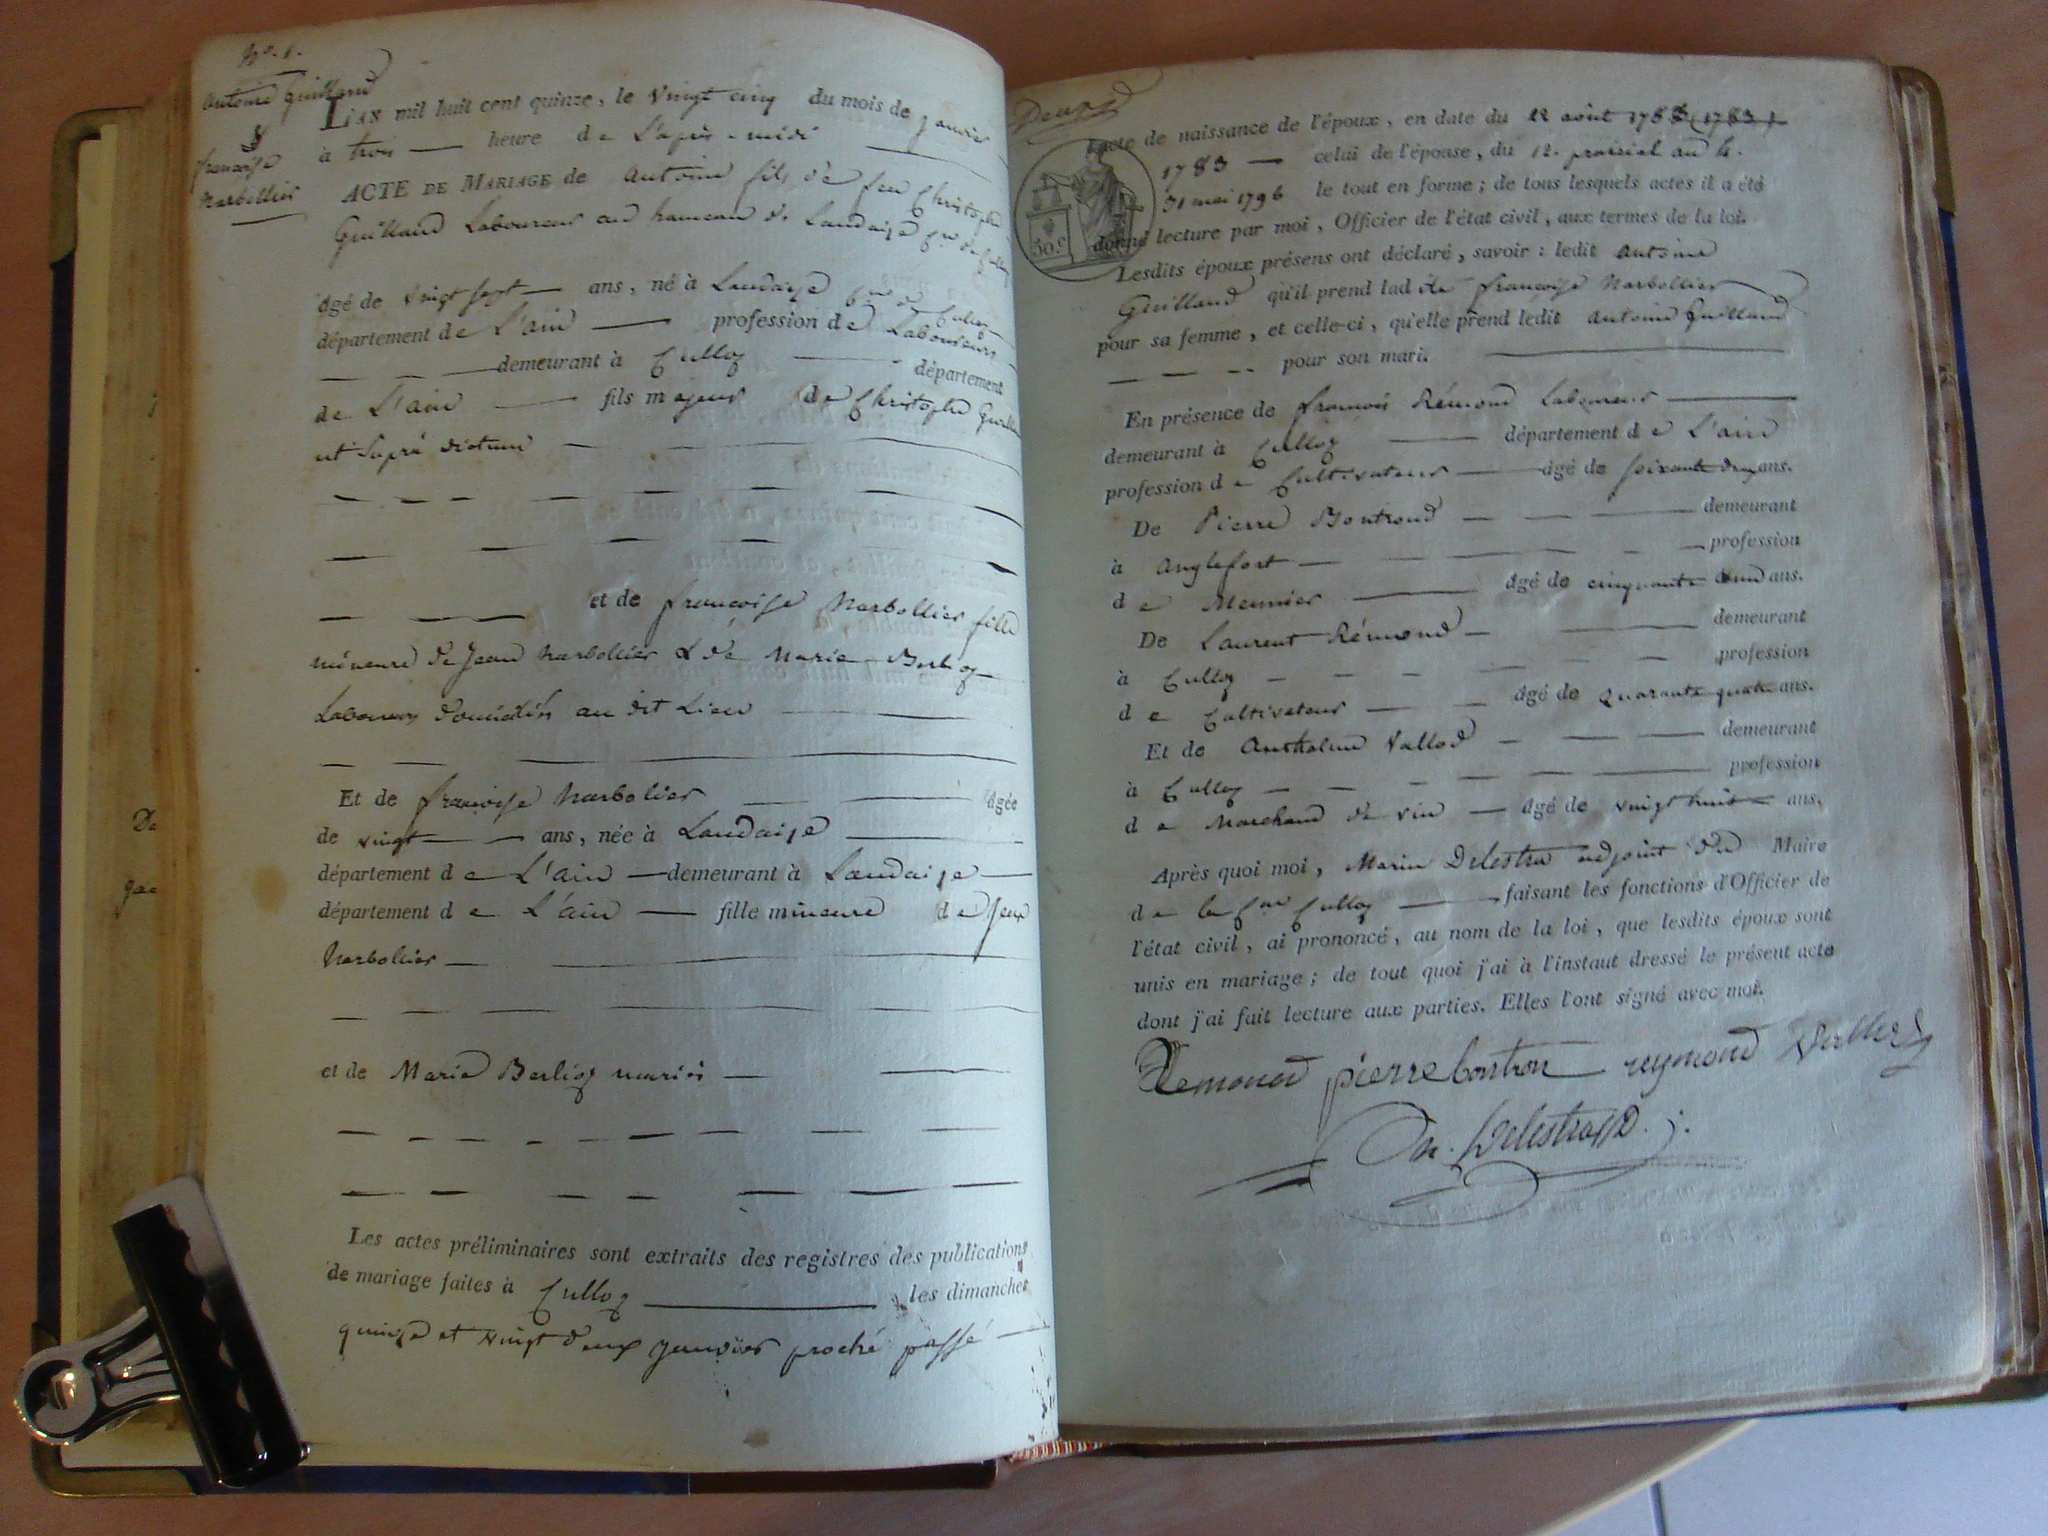 No. 1.
Antoine Guilland
&
françoise
Narbollier
L'AN mil huit cent quinze, le vingt cinq du mois de janvier
à trois heure de L'après-midi
ACTE DE MARIAGE de Antoine fils de feu Christophe
Guilland Laboureur au hameau de Landaize Cne de Culloz
âgé de vingt sept ans, né à Landaize Cne de Culloz
département de L'ain profession de Laboureur
demeurant à Culloz département
de L'ain fils majeur de Christophe Guilland
ut Suprà dictum
et de françoise Narbollier fille
mineure de Jean Narbollier & de Marie Berlioz
Laboureurs domiciliés au dit Lieu
Et de françoise Narbolier âgée
de vingt ans, née à Landaize
département de L'ain demeurant à Landaize
département de L'ain fille mineure de Jean
Narbollier
et de Marie Berlioz mariés
Les actes préliminaires sont extraits des registres des publications
de mariage faites à Culloz les dimanches
quinze et vingt deux janvier proché passé
De
Deux
30.c
acte de naissance de l'époux, en date du 22 août 1783 (1783)
1783 celui de l'épouse, du 12. prairial an 4.
31 mai 1796 le tout en forme; de tous lesquels actes il a été
donné lecture par moi, Officier de l'état civil, aux termes de la loi.
Lesdits époux présens ont déclaré, savoir: ledit Antoine
Guilland qu'il prend ladite françoise Narbollier
pour sa femme, et celle-ci, qu'elle prend ledit Antoine Guilland
pour son mari.
En présence de françois Rémond Laboureur
demeurant à Culloz département de L'ain
profession de Cultivateur âgé de soixante deux ans.
De Pierre Bontrond demeurant
à Anglefort profession
de Meunier âgé de cinquante ans.
De Laurent Rémond demeurant
à Culloz profession
de Cultivateur âgé de quarante quatre ans.
Et de Anthelme Vallod demeurant
à Culloz profession
de Marchand de vin âgé de vingt huit ans.
Après quoi moi, Marin Delestra adjoint du Maire
de la Cne Culloz faisant les fonctions d'Officier de
l'état civil, ai prononcé, au nom de la loi, que lesdits époux sont
unis en mariage; de tout quoi j'ai à l'instant dressé le présent acte
dont j'ai fait lecture aux parties. Elles l'ont signé avec moi.
Remond pierre bontron reymond